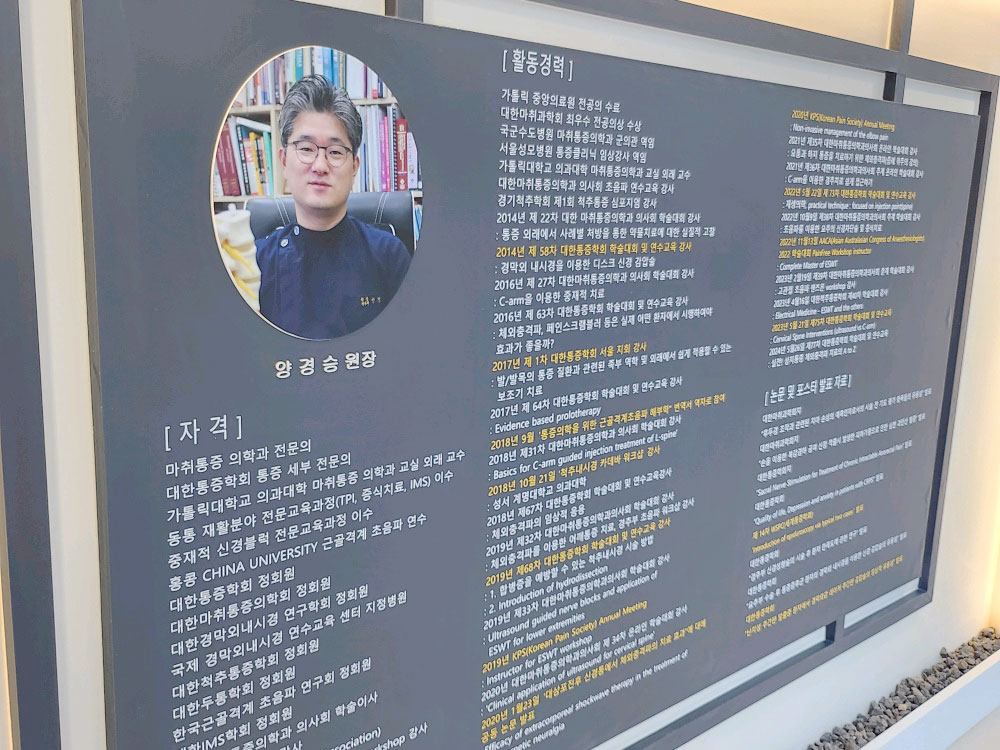 양경승 원장
[ 자 격 ]
마취통증 의학과 전문의
대한통증학회 통증 세부 전문의
가톨릭대학교 의과대학 마취통증 의학과 교실 외래 교수
동통 재활분야 전문교육과정(TPI, 증식치료, IMS) 이수
중재적 신경블럭 전문교육과정 이수
홍콩 CHINA UNIVERSITY 근골격계 초음파 연수
대한통증학회 정회원
대한마취통증의학회 정회원
대한경막외내시경 연구학회 정회원
국제 경막외내시경 연수교육 센터 지정병원
대한척추통증학회 정회원
대한두통학회 정회원
한국근골격계 초음파 연구회 정회원
대한IMS학회 정회원
의학과 의사회 학술이사
[ 활동경력 ]
가톨릭 중앙의료원 전공의 수료
대한마취과학회 최우수 전공의상 수상
국군수도병원 마취통증의학과 군의관 역임
서울성모병원 통증클리닉 임상강사 역임
가톨릭대학교 의과대학 마취통증의학과 교실 외래 교수
대한마취통증의학과 의사회 초음파 연수교육 강사
경기척추학회 제1회 척추통증 심포지엄 강사
2014년 제 22차 대한 마취통증의학과 의사회 학술대회 강사
: 통증 외래에서 사례별 처방을 통한 약물치료에 대한 실질적 고찰
2014년 제 58차 대한통증학회 학술대회 및 연수교육 강사
: 경막외 내시경을 이용한 디스크 신경 감압술
2016년 제 27차 대한마취통증의학과 의사회 학술대회 강사
: C-arm을 이용한 중재적 치료
2016년 제 63차 대한통증학회 학술대회 및 연수교육 강사
: 체외충격파, 페인스크램블러 등은 실제 어떤 환자에서 시행하여야
효과가 좋을까?
2017년 제 1차 대한통증학회 서울 지회 강사
: 발/발목의 통증 질환과 관련된 족부 역학 및 외래에서 쉽게 적용할 수 있는
보조기 치료
2017년 제 64차 대한통증학회 학술대회 및 연수교육 강사
: Evidence based prolotherapy
2018년 9월 "통증의학을 위한 근골격계초음파 해부학" 번역서 역자로 참여
2018년 제31차 대한마취통증의학과의사회 학술대회 강사
: Basics for C-arm guided injection treatment of L-spine'
2018년 10월 21일 '척추내시경 카데바 워크샵 강사
: 성서 계명대학교 의과대학
2018년 제67차 대한통증학회 학술대회 및 연수교육강사
: 체외충격파의 임상적 응용
2019년 제32차 대한마취통증의학과의사회 학술대회 강사
: 체외충격파를 이용한 어깨통증 치료, 경추부 초음파 워크샵 강사
2019년 제68차 대한통증학회 학술대회 및 연수교육 강사
: 1. 합병증을 예방할 수 있는 척추내시경 시술 방법
: 2. Introduction of hydrodissection
2019년 제33차 대한마취통증의학과의사회 학술대회 강사
: Ultrasound guided nerve blocks and application of
ESWT for lower extremities
2019년 KPS(Korean Pain Society) Annual Meeting
: Instructor for ESWT workshop
2020년 대한마취통증의학과의사회 제 34차 온라인 학술대회 강사
: 'Clinical application of ultrasound for cervical spine'
2020년 1월23일 '대상포진후 신경통에서 체외충격파의 치료 효과'에 대해
공동 논문 발표
Efficacy of extracorporeal shockwave therapy in the treatment of
2020년 KPS(Korean Pain Society) Annual Meeting
: Non-invasive management of the elbow pain
2021년 제35차 대한마취통증의학과의사회 온라인 학술대회 강사
2021년 제36차 대한마취통증의학과의사회 추계 온라인 학술대회 강사
: C-arm을 이용한 경추치료 쉽게 접근하기
2022년 5월 22일 제 73차 대한통증학회 학술대회 및 연수교육 강사
: 재생의학; practical technique : focused on injection point(igeine)
2022년 10월9일 제38차 대한마취통증의학과의사회 추계 학술대회 강사
2022년 11월13일 AACA(Asian Australasian Congress of Anaesthesiologists)
2022 학술대회 PainFree Workshop instructor
: Complete Master of ESWT
2023년 2월19일 제39차 대한마취통증의학과의사회 춘계 학술대회 강사
: 고관절 초음파 핸즈온 workshop 강사
2023년 4월16일 대한척추통증학회 제40차 학술대회 강사
: Electrical Medicine - ESWT and the others
2023년 5월 21일 제75차 대한통증학회 학술대회 및 연수교육
: Cervical Spine Interventions (ultrasound vs C-arm)
2024년 5월26일 제77차 대한통증학회 학술대회 및 연수교육
: 실전! 상지통증 체외충격파 치료의 A to Z'
[ 논문 및 포스터 발표 자료 ]
대한마취과학회지
대한마취과학회지
대한통증학회지
"Sacral Nerve Stimulation for Treatment of Chronic Intractable Anorectal Pain" 발표
대한통증학회
"Quality of life, Depression and anxiety in patients with CRPS" 발표
제 14차 WSPC(세계통증학회)
대한통증학회
대한통증학회
대한통증학회